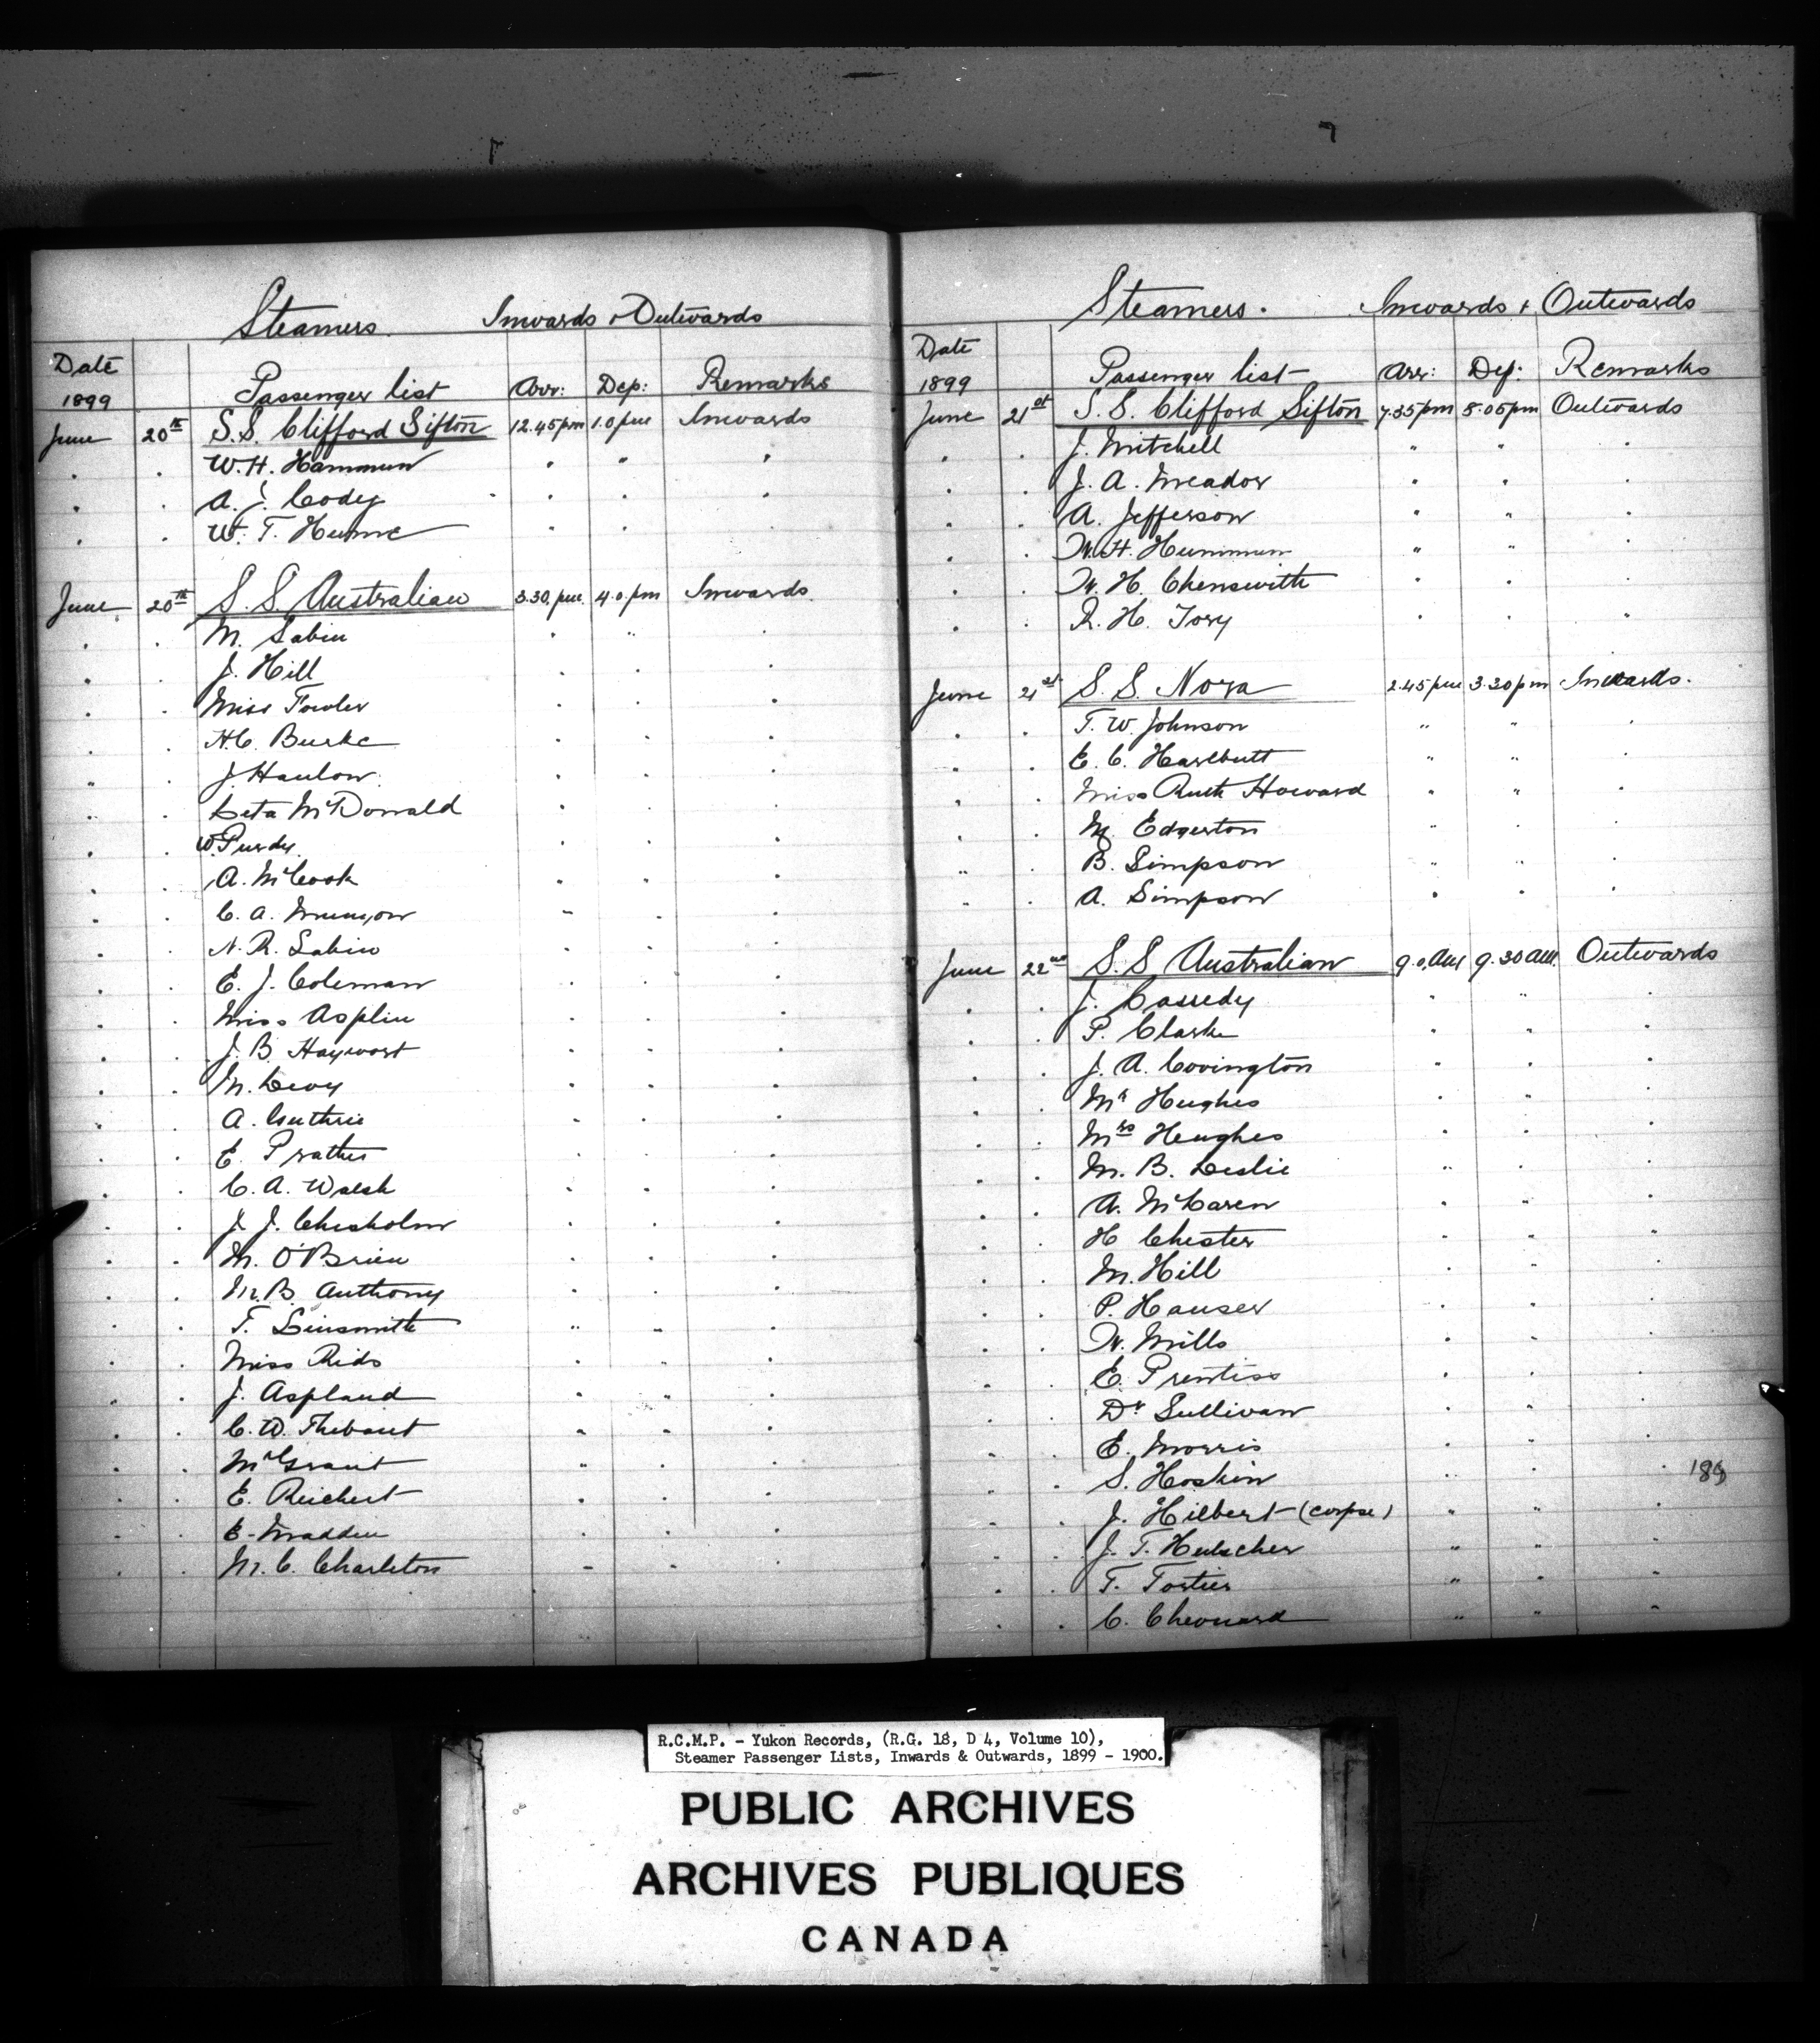 Steamers. Inwards & Outwards
Date
1899 Passenger list Arr: Dep: Remarks
June 20th S.S. Clifford Sifton 12.45pm 1.0pm Inwards
W.H. Hammun
A. J. Cody
W. T. Hume
June 20th S.S. Australian 3.30.pm. 4.0.pm Inwards.
M. Sabin
J. Hill
Miss Fowler
H.C. Burke
J. Hanlow
Leta McDonald
W. Purdy.
A. McCook
C. A. Munyon
N. R. Sabin
E. J. Coleman
Miss Asplin
J. B. Hayworst
M. Levy
A. Guthrie
E. Prather
C. A. Walsh
J. J. Chisholm
M. O'Brien
M. B. Anthony
T. Linsmith
Miss Rids
J. Aspland
C. W. Thibaut
Mr Grant
E. Reichert
E. Maddin
M. C. Charleton
Steamers. Inwards & Outwards
Date
1899 Passenger list Arr: Dep: Remarks
June 21st S.S. Clifford Sifton 7.35pm 8.05pm Outwards
J. Mitchell
J. A. Meador
A. Jefferson
W. H. Hummun
W. H. Chenswith
R. H. Tory
June 21st S.S. Nora 2.45pm 3.30pm Inwards.
T. W. Johnson
E. C. Harlbutt
Miss Ruth Howard
M. Edgerton
B. Simpson
A. Simpson
June 22nd S.S Australian 9.0.AM 9.30AM. Outwards
J. Cassedy
P. Clarke
J. A. Covington
Mr Hughes
Mrs Hughes
M. B. Leslie
A. McLaren
H Chester
M. Hill
P. Hauser
W. Mills
E. Prentiss
Dr Sullivan
E. Morris
S. Hoskin
J. Hilbert (corpse)
J. T. Hulscher
T. Tortier
C. Chevuard
189
R.C.M.P. - Yukon Records, (R.G. 18, D 4, Volume 10),
Steamer Passenger Lists, Inwards & Outwards, 1899 - 1900.
PUBLIC ARCHIVES
ARCHIVES PUBLIQUES
CANADA